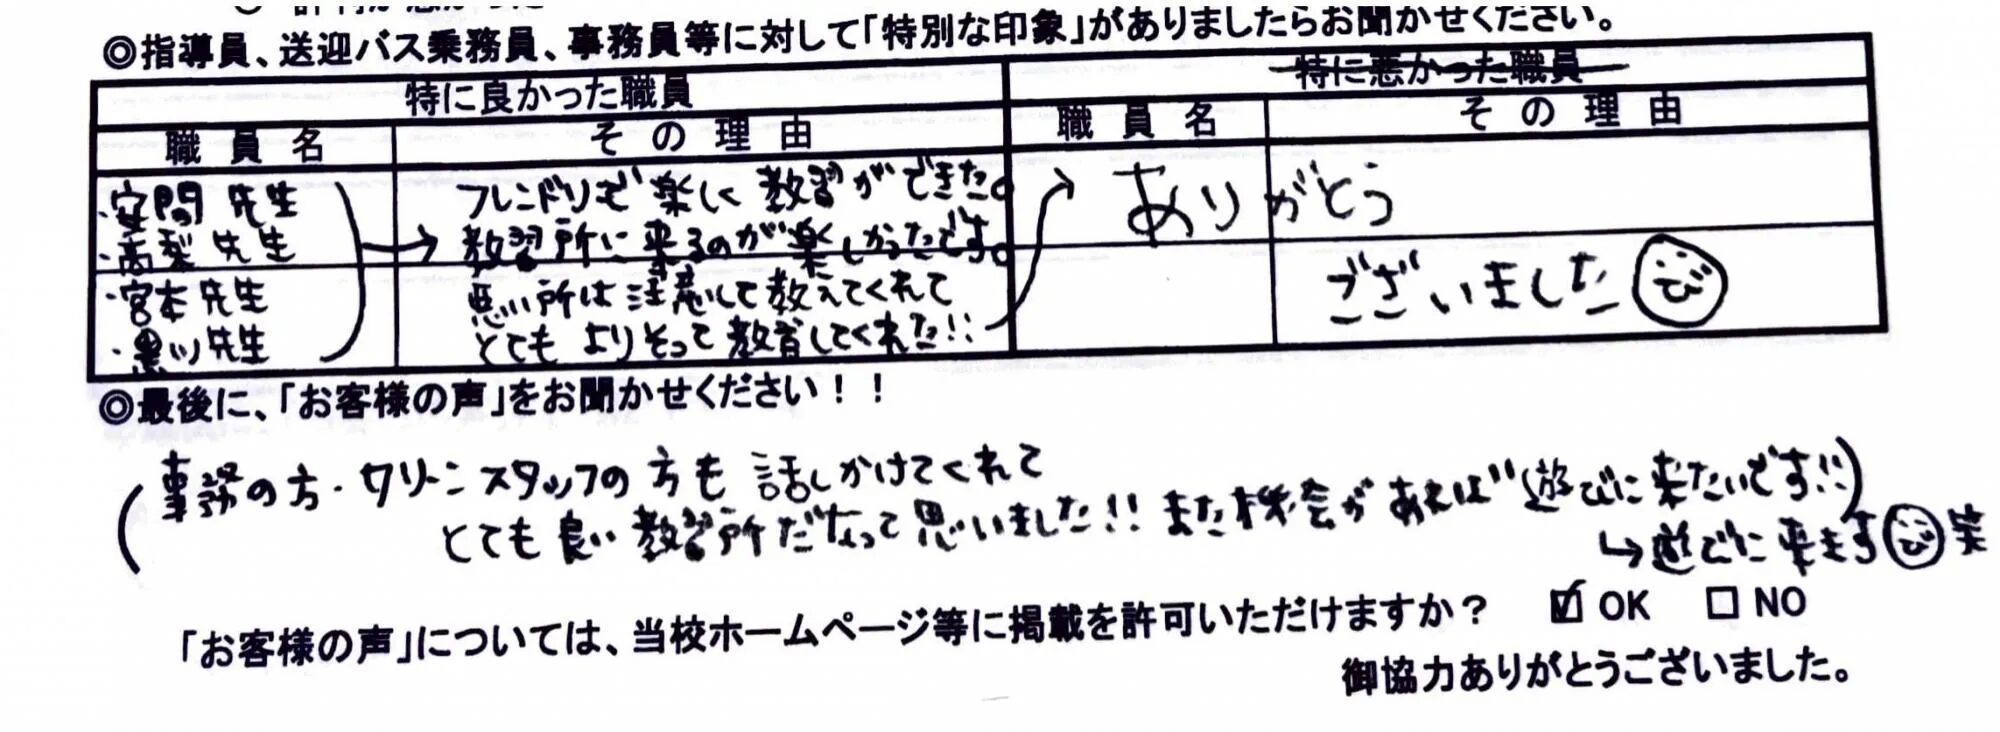 ◎指導員、送迎バス乗務員、事務員等に対して「特別な印象」がありましたらお聞かせください。
特に良かった職員
特に悪かった職員
職員名
その理由
職員名
その理由
・安間先生
・高梨先生
・宮本先生
・黒川先生
フレンドリで楽しく教習ができた。
教習所に来るのが楽しかったです。
悪い所は注意して教えてくれて
とてもよりそって教習してくれた!!
ありがとう
ございました
び
◎最後に、「お客様の声」をお聞かせください！！
事務の方・クリーンスタッフの方も話しかけてくれて
とても良い教習所だなって思いました!! また機会があれば遊びに来たいです!!
↳遊びに来ます び 笑
「お客様の声」については、当校ホームページ等に掲載を許可いただけますか？ ☑ OK □ NO
御協力ありがとうございました。